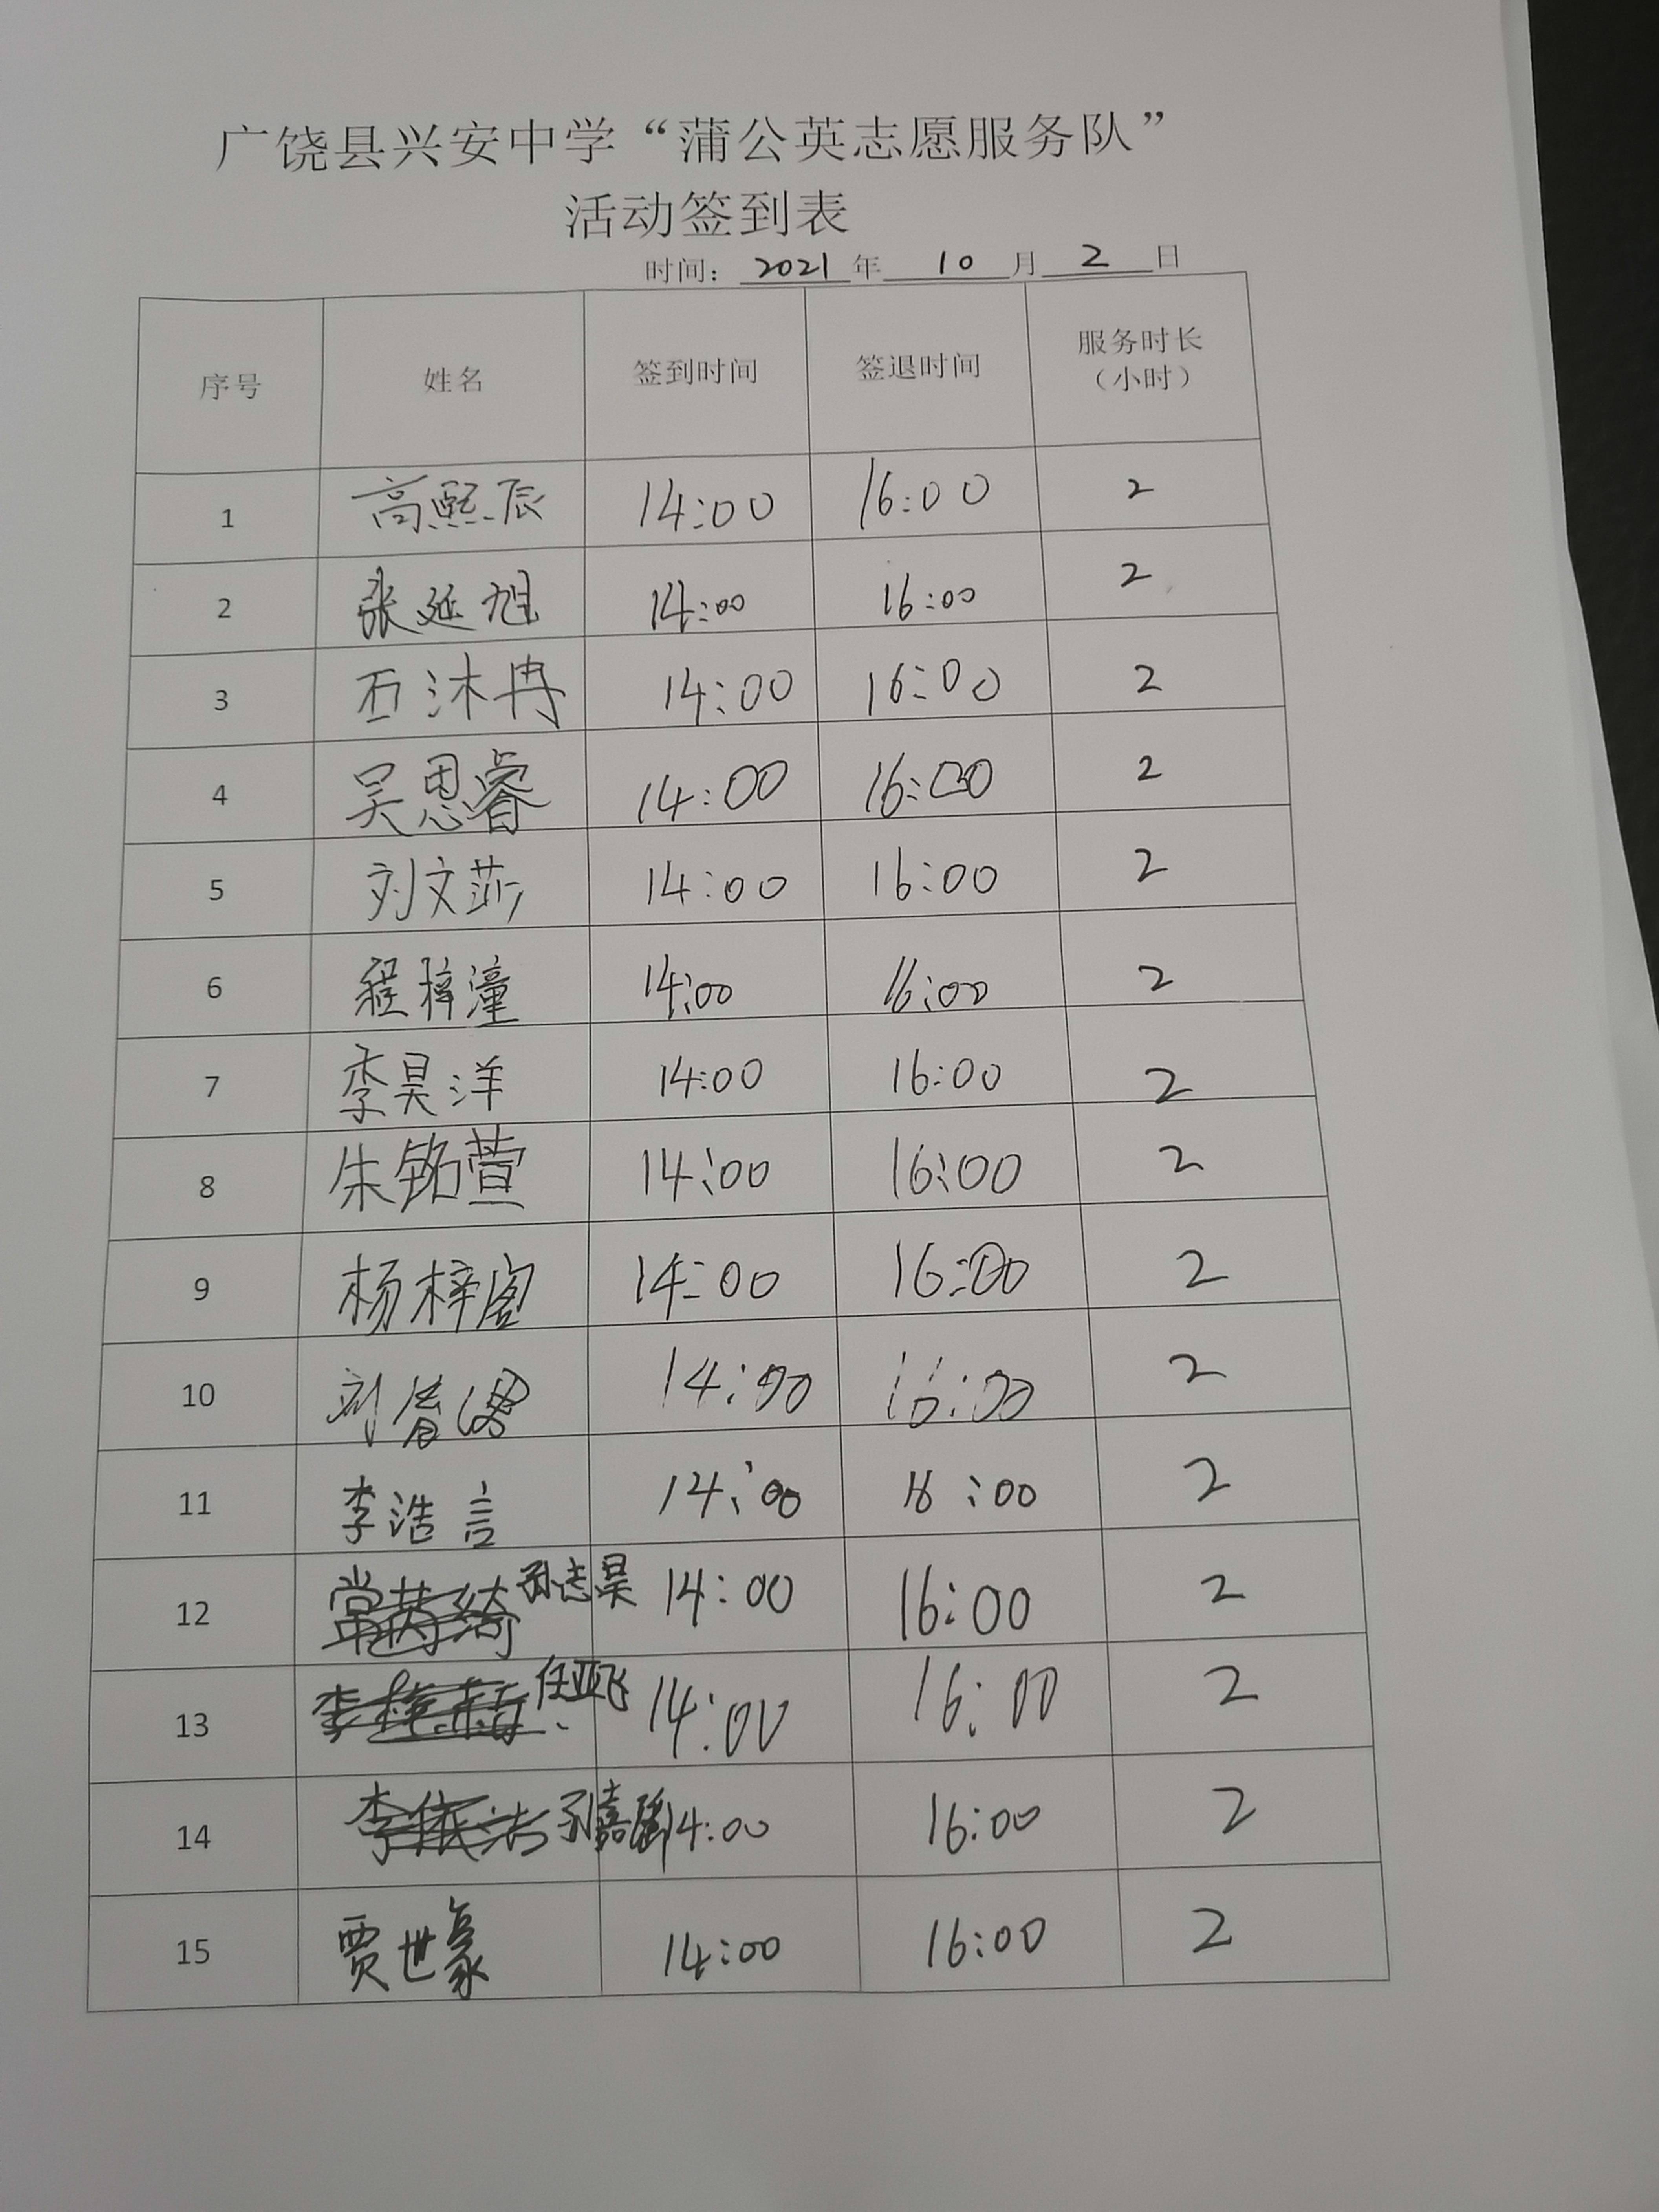 广饶县兴安中学“蒲公英志愿服务队”
活动签到表
时间： 2021 年 10 月 2 日
序号 姓名 签到时间 签退时间 服务时长（小时）
1 高熙辰 14:00 16:00 2
2 张延旭 14:00 16:00 2
3 石沐冉 14:00 16:00 2
4 吴思睿 14:00 16:00 2
5 刘文莎 14:00 16:00 2
6 程梓潼 14:00 16:00 2
7 李昊洋 14:00 16:00 2
8 朱铭萱 14:00 16:00 2
9 杨梓阁 14:00 16:00 2
10 刘 14:00 16:00 2
11 李浩言 14:00 16:00 2
12 孙志昊 14:00 16:00 2
13 任亚飞 14:00 16:00 2
14 14:00 16:00 2
15 贾世豪 14:00 16:00 2